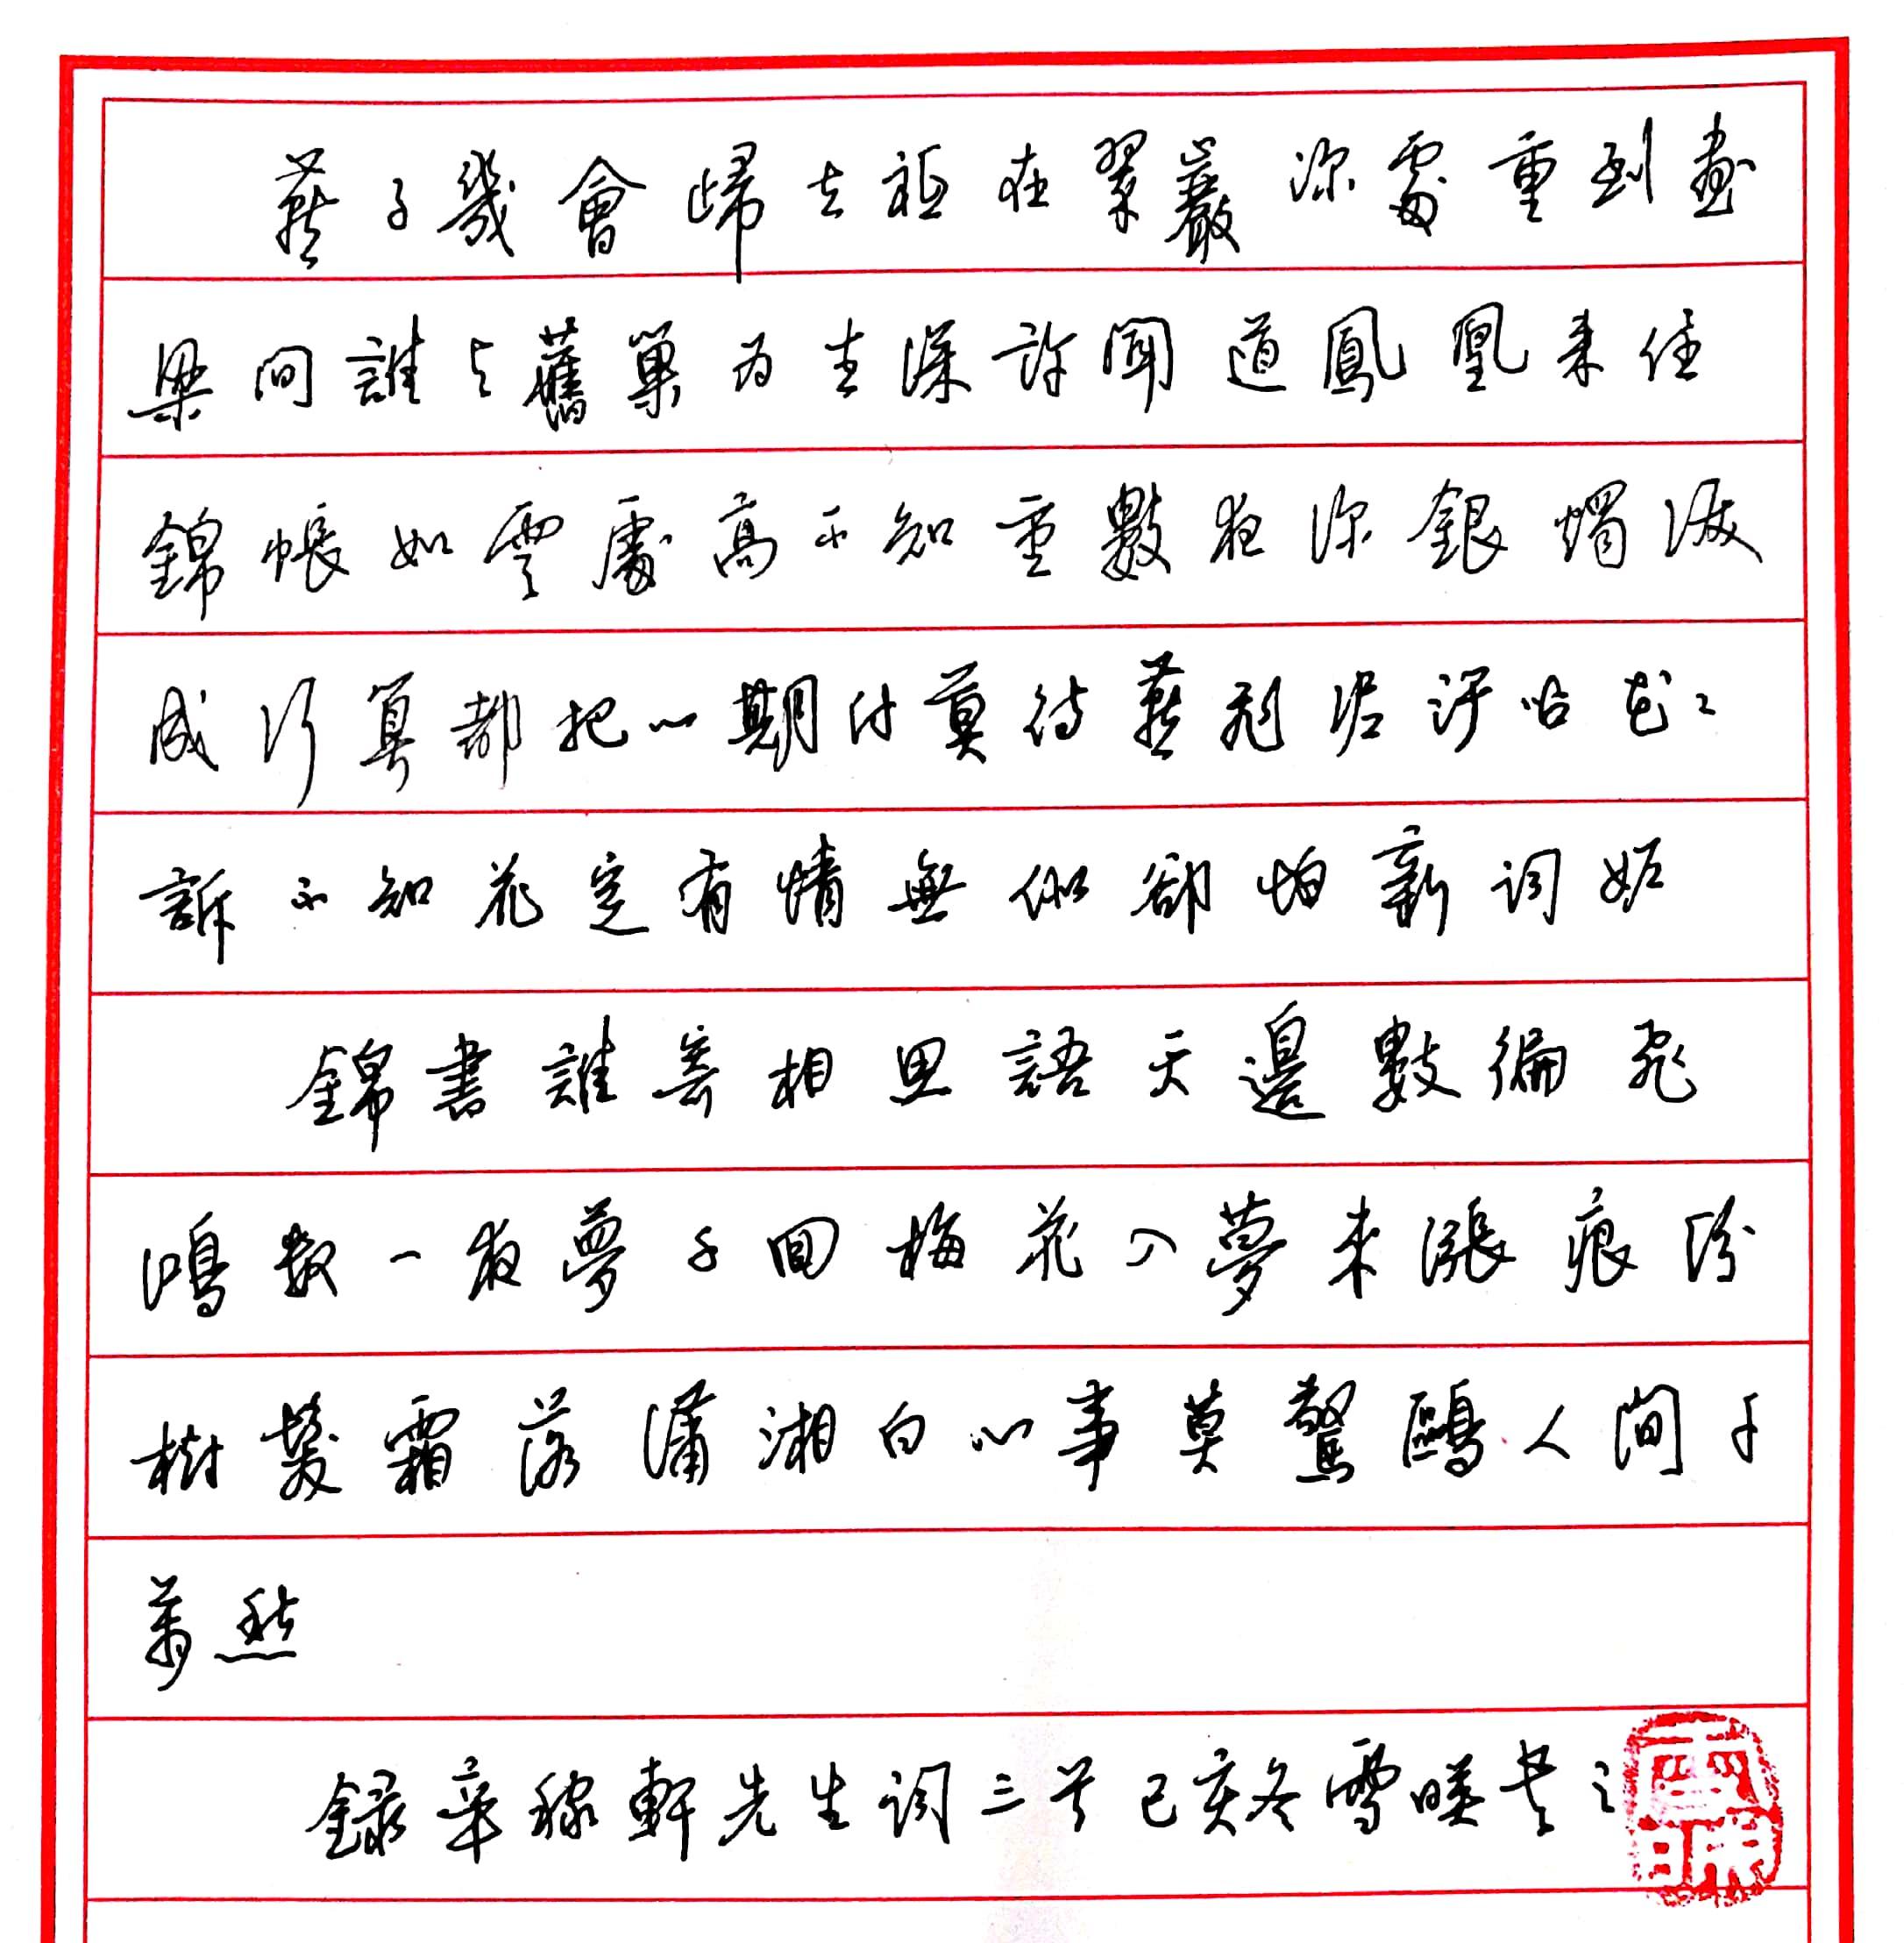 燕子幾會歸去祗在翠巖深處重到畫
梁間誰與舊巢為主深許聞道鳳凰來住
錦帳如雲處高不知重數夜深銀燭淚
成行算都把心期付莫待燕飛泥汙問花〻
訴不知花定有情無似卻怕新詞妒
錦書誰寄相思語天邊數徧飛
鴻數一夜夢千回梅花入夢來漲痕紛
樹髮霜落瀟湘白心事莫驚鷗人間千
萬愁
錄辛稼軒先生詞三首己亥冬雪暎書之